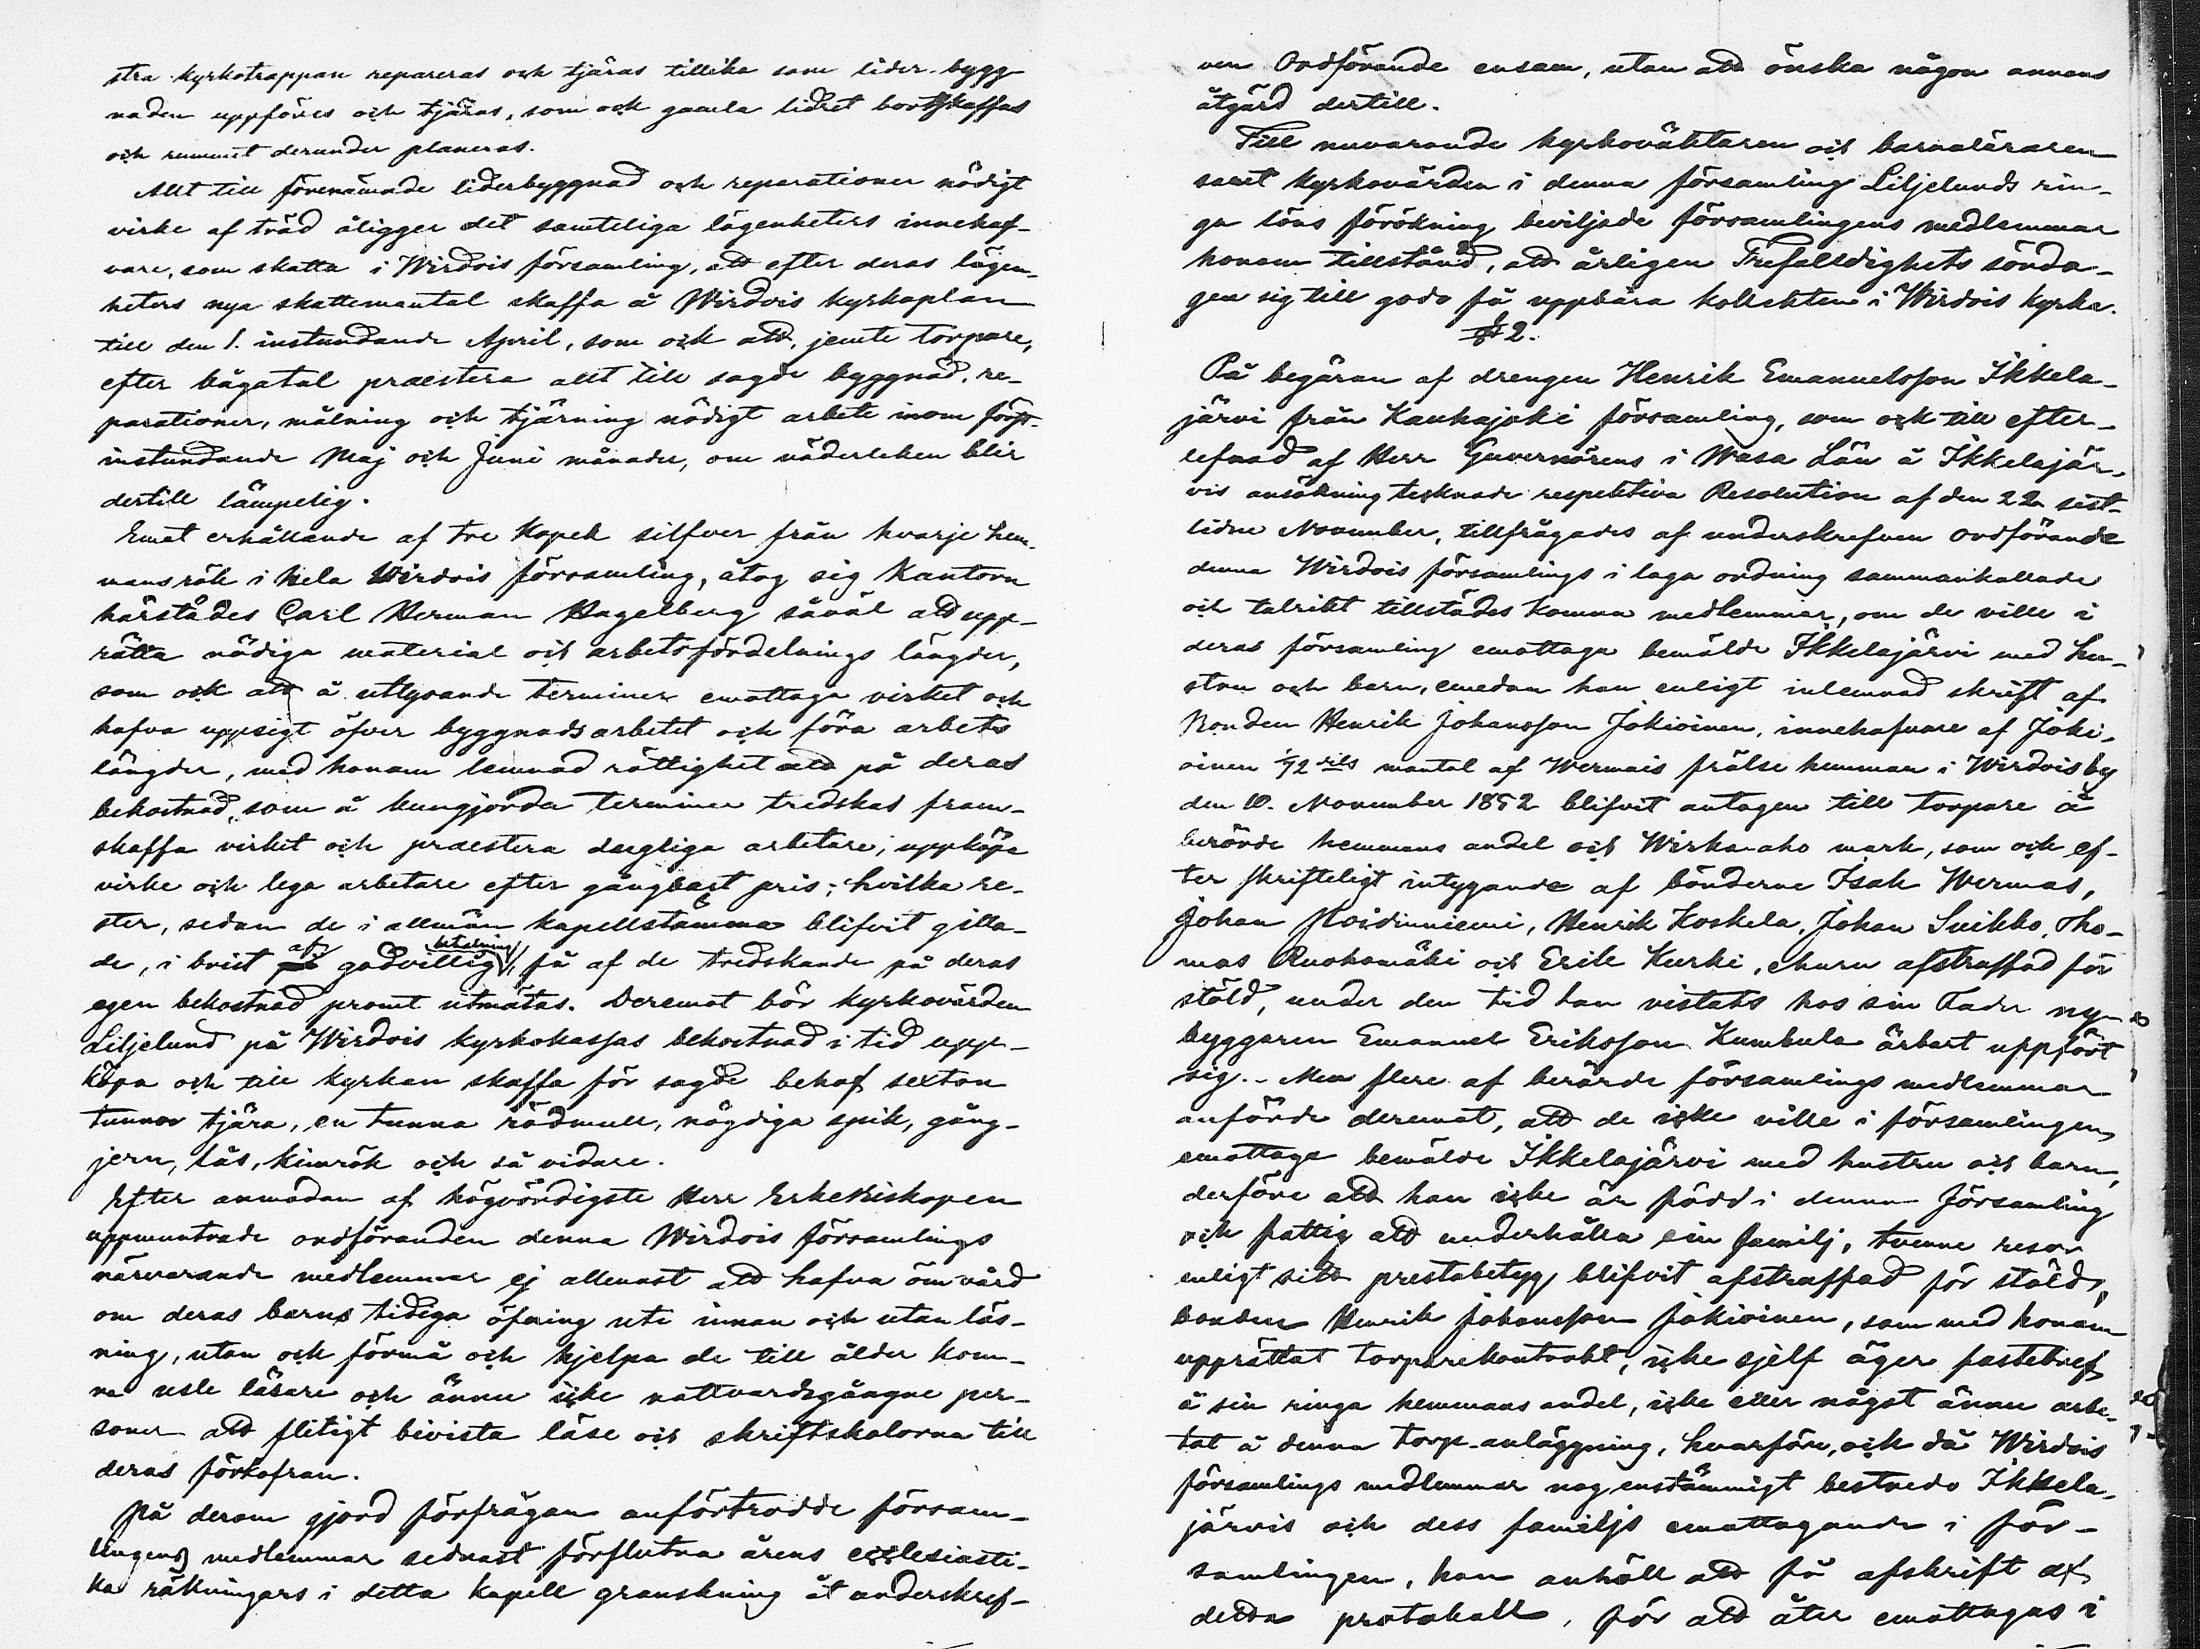 stra kyrkotrappan repareras och tjäras tillika som lider-bygg-
naden uppföres och tjäras, som ock gamla lidret bortskaffas
och rummet derunder planeras.
Allt till förenämnde liderbyggnad och reparationer nödigt
virke af träd åligger det samteliga lägenheters innehaf-
vare, som skatta i Wirdois församling, att efter deras lägen-
heters nya skattemantal skaffa å Wirdois kyrkoplan
till den 1. instundande April, som ock att, jemte torpare,
efter bågatal praestera allt till sagde byggnad, re-
parationer, målning och tjärning nödigt arbete inom först-
instundande Maj och Juni månader, om väderleken blir
dertill lämpelig.
Emot erhållande af tre Kopek silfver från hvarje hem-
mansrök i hela Wirdois församling, åtog sig Kantorn
härstädes Carl Herman Hagelberg såväl att upp-
rätta nödiga material och arbetsfördelnings längder,
som ock att å utlysande terminer emottaga virket och
hafva uppsigt öfver byggnadsarbetet och föra arbets
längder, med honom lemnad rättighet att på deras
bekostnad, som å kungjorda terminer tredskas fram-
skaffa virket och praestera dugliga arbetare, uppköpa
virke och lega arbetare efter gångbart pris; hvilka re-
ster, sedan de i allmän kapellstämma blifvit gilla-
de, i brist af godvillig betalning, få af de tredskande på deras
egen bekostnad promt utmätas. Deremot bör kyrkovärden
Liljelund på Wirdois kyrkokassas bekostnad i tid upp-
köpa och till kyrkan skaffa för sagde behof sexton
tunnor tjära, en tunna rödmull, nögdiga spik, gång-
jern, lås, kimrök och så vidare.
Efter anmodan af högvördigste Herr Erkebiskopen
uppmuntrade ordföranden denna Wirdois församlings
närvarande medlemmar ej allenast att hafva omvård
om deras barns tidiga öfning uti innan och utan läs-
ning, utan och förmå och hjelpa de till ålder kom-
na usle läsare och ännu icke nattvardsgångne per-
soner att flitigt bivista läse och skriftskolorna till
deras förkofran.
På derom gjord förfrågan anförtrodde försam-
lingens medlemmar sednast förflutna årens ecclesiasti-
ka räkningars i detta kapell granskning åt underskref-
ven Ordförande ensam, utan att önska någon annans
åtgärd dertill.
Till nuvarande kyrkoväktaren och barnaläraren
samt kyrkovärden i denna församling Liljelunds rin-
ga löns förökning beviljade församlingens medlemmar
honom tillstånd, att årligen Trefalldighets sönda-
gen sig till godo få uppbära kollekten i Wirdois kyrka.
§ 2.
På begäran af drengen Henrik Emanuelsson Ikkela-
järvi från Kauhajoki församling, som ock till efter-
lefnad af Herr Guvernörens i Wasa Län å Ikkelajär-
vis ansökning tecknade respektiva Resolution af den 22 sist-
lidne November, tillfrågades af underskrefven ordförande
denna Wirdois församlings i laga ordning sammankallade
och talrikt tillstädes komna medlemmar, om de ville i
deras församling emottaga bemälde Ikkelajärvi med hu-
stru och barn, emedan han enligt inlemnad skrift af
Bonden Henrik Johansson Jokioinen, innehafvare af Joki-
oinen 1/72 dels mantal af Wermais frälse hemman i Wirdois by
den 10. November 1852 blifvit antagen till torpare å
berörde hemmans andel och Wirka-aho mark, som ock ef-
ter skrifteligt intygande af bönderne Isak Wermas,
Johan Hoidinniemi, Henrik Koskela, Johan Suikko, Tho-
mas Ruohomäki och Erik Kurki, ehuru afstraffad för
stöld, under den tid han vistats hos sin Fader ny-
byggaren Emanuel Eriksson Kumbula ärbart uppfört
sig. - Men flere af berörde församlings medlemmar
anförde deremot, att de icke ville i församlingen
emottaga bemälde Ikkelajärvi med hustru och barn,
derföre att han icke är född i denna församling
och fattig att underhålla sin familj, tvenne resor
enligt sitt prestabetyg blifvit afstraffad för stöld,
bonden Henrik Johansson Jokioinen, som med honom
upprättat torparekontrakt, icke sjelf äger fastebref
å sin ringa hemmans andel, icke eller något ännu arbe-
tat å denna torp-anläggning, hvarföre, och då Wirdois
församlings medlemmar nog enstämmigt bestredo Ikkela-
järvis och dess familjs emottagande i för-
samlingen, han anhöll att få afskrift af
detta protokoll, för att åter emottagas i